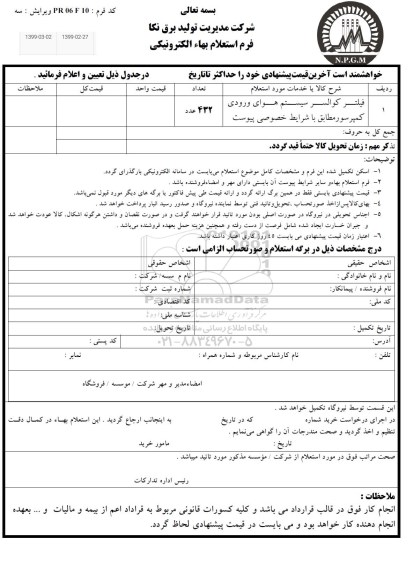 بسمه تعالی
کد فرم : PR 06 F 10 ویرایش : سه
شرکت مدیریت تولید برق نکا
فرم استعلام بهاء الکترونیکی
1399-03-02
1399-02-27
N.P.G.M
خواهشمند است آخرین قیمت پیشنهادی خود را حداکثر تاتاریخ درجدول ذیل تعیین و اعلام فرمائید .
ردیف شرح کالا یا خدمات مورد استعلام تعداد قیمت واحد قیمت کل ملاحظات
۱ فیلتر کوالسر سیستم هوای ورودی کمپرسور مطابق با شرایط خصوصی پیوست ۴۳۲ عدد
جمع کل به حروف:
تذکر مهم : زمان تحویل کالا حتماً قید گردد.
توضیحات:
۱- اسکن تکمیل شده این فرم و مشخصات کامل موضوع استعلام می‌بایست در سامانه الکترونیکی بارگذاری گردد.
۲- فرم استعلام بهاء و سایر شرایط پیوست آن بایستی دارای مهر و امضاء فروشنده باشد .
۳- قیمت پیشنهادی بایستی فقط در همین برگ ارائه گردد و ارائه قیمت طی پیش فاکتور یا برگه های دیگر مورد قبول نمی‌باشد.
۴- بهای کالا پس از اخذ صورتحساب ،تحویل و تائید فنی توسط نماینده نیروگاه و صدور رسید انبار پرداخت خواهد شد .
۵- اجناس تحویلی در نیروگاه در صورت اصلی بودن مورد تائید قرار خواهند گرفت و در صورت نقصان و داشتن هرگونه اشکال، کالا عودت خواهد شد و جبران خسارت ایجاد شده شامل فرصت از دست رفته و همچنین هزینه حمل بعهده فروشنده می‌باشد .
۶- اعتبار زمان قیمت پیشنهادی می بایست ۴۵ روز کاری اعتبار داشته باشد.
درج مشخصات ذیل در برگه استعلام و صورتحساب الزامی است :
اشخاص حقیقی اشخاص حقوقی
نام و نام خانوادگی : نام موسسه/ شرکت :
نام فروشنده / پیمانکار: شماره ثبت شرکت :
کد ملی: کد اقتصادی:
شناسه ملی:
تاریخ تکمیل : تاریخ تحویل:
آدرس: کد پستی :
تلفن : نام کارشناس مربوطه و شماره همراه : نمابر :
امضاءمدیر و مهر شرکت / موسسه / فروشگاه
ParsNamadData
پایگاه اطلاع رسانی مناقصه و مزایده
۰۲۱-۸۸۳۴۹۶۷۰-۵
این قسمت توسط نیروگاه تکمیل خواهد شد .
در اجرای درخواست خرید شماره که در تاریخ به اینجانب ارجاع گردید . این استعلام بهاء در کمال دقت تنظیم و اخذ گردید و صحت مندرجات آن را گواهی می‌نمایم .
تاریخ : مامور خرید
صحت مراتب فوق در مورد استعلام از شرکت / مؤسسه مذکور مورد تائید میباشد .
رئیس اداره تدارکات
ملاحظات :
انجام کار فوق در قالب قرارداد می باشد و کلیه کسورات قانونی مربوط به قراداد اعم از بیمه و مالیات و ... بعهده
انجام دهنده کار خواهد بود و می بایست در قیمت پیشنهادی لحاظ گردد.